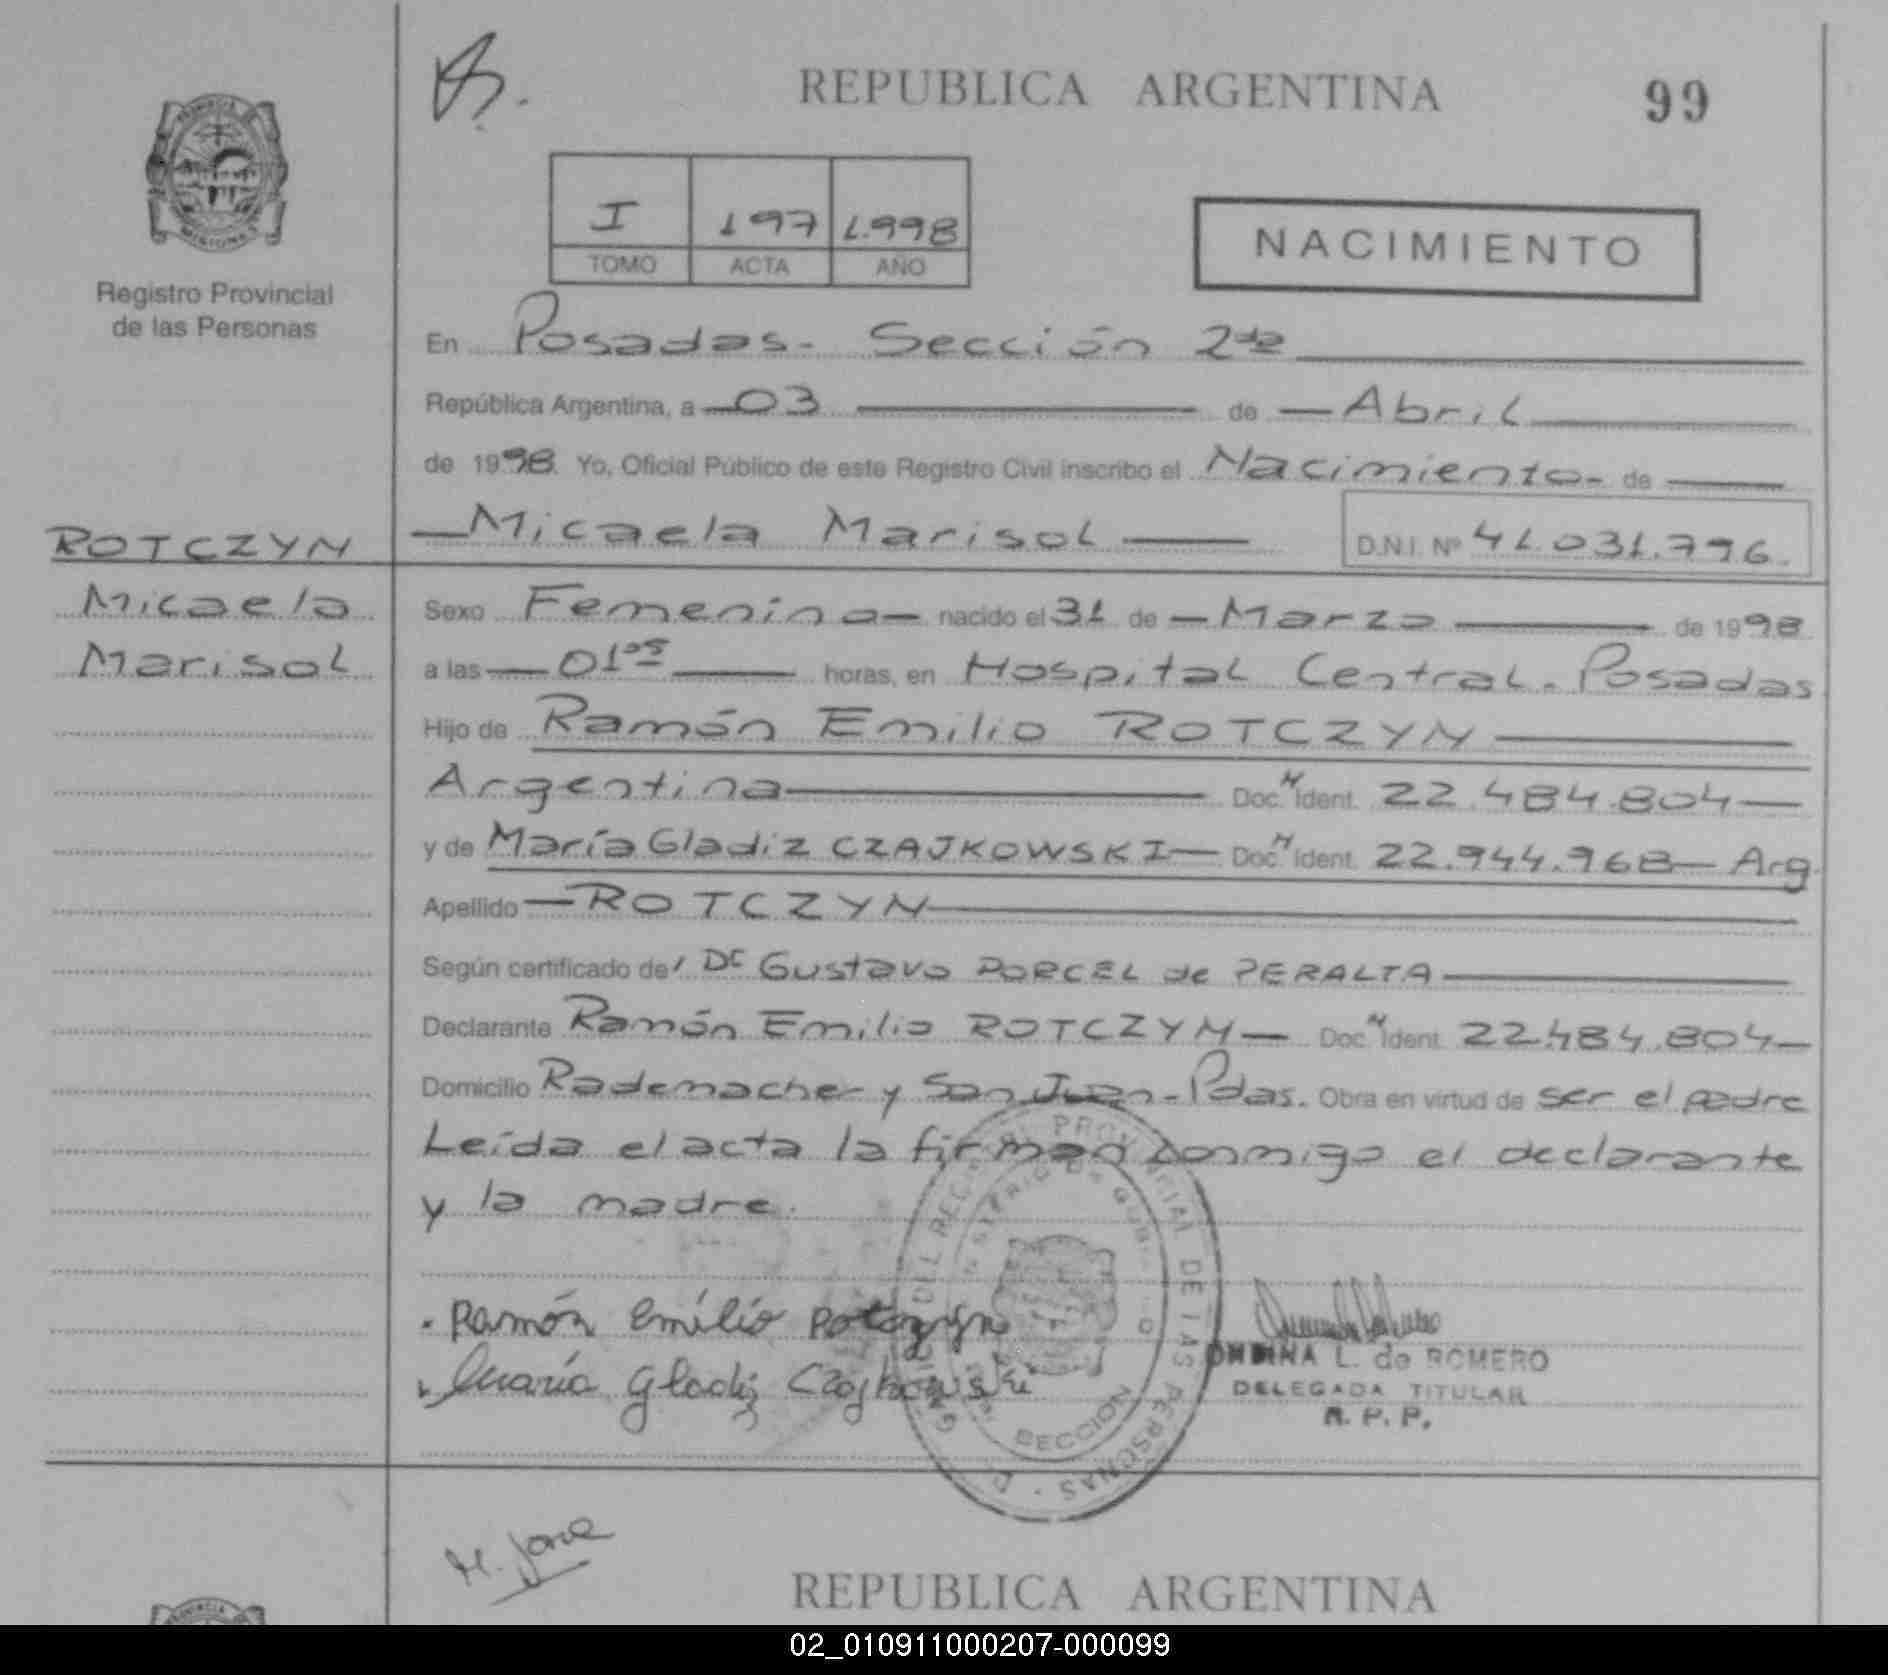 REPUBLICA ARGENTINA
99
PROVINCIA DE
MISIONES
Registro Provincial
de las Personas
I 197 1.998
TOMO ACTA AÑO
NACIMIENTO
En Posadas - Sección 2da
República Argentina, a 03 de Abril
de 1998. Yo, Oficial Público de este Registro Civil inscribo el Nacimiento - de
Micaela Marisol D.N.I. Nº 41.031.796.
ROTCZYN
Micaela
Marisol
Sexo Femenino nacido el 31 de Marzo de 1998
a las 01 05 horas, en Hospital Central - Posadas
Hijo de Ramón Emilio ROTCZYN
Argentina Doc. N Ident. 22.484.804
y de María Gladiz CZAJKOWSKI Doc. N Ident. 22.944.968 Arg.
Apellido ROTCZYN
Según certificado del Dr Gustavo PORCEL de PERALTA
Declarante Ramón Emilio ROTCZYN Doc. N Ident. 22.484.804
Domicilio Rademacher y San Juan - Pdas. Obra en virtud de ser el padre
Leída el acta la firman conmigo el declarante
y la madre.
Ramón Emilio Rotczyn
María Gladiz Czajkowski
L. de ROMERO
DELEGADA TITULAR
R. P. P.
PROVINCIAL DE LAS PERSONAS
SECCION
REPUBLICA ARGENTINA
02_010911000207-000099